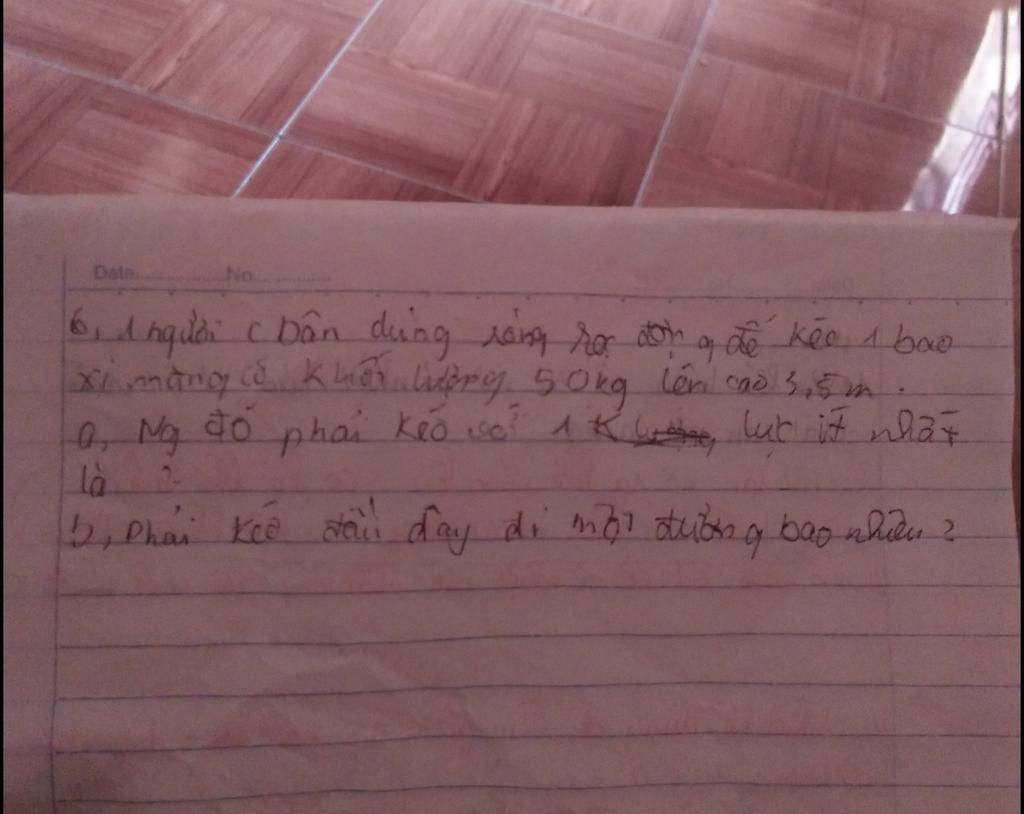 Date No
6, 1 người c Dân dùng ròng rọc động để kéo 1 bao
xi măng có khối lượng 50kg lên cao 3,5m.
a, Ng đó phải kéo với 1 lực ít nhất
là ?
b, Phải kéo đầu dây đi một đường bao nhiêu?